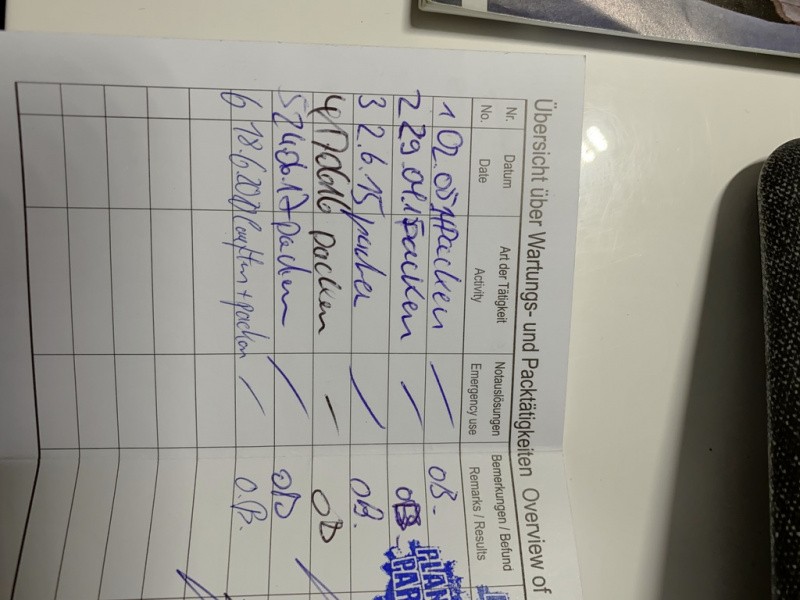 Übersicht über Wartungs- und Packtätigkeiten Overview of
Nr. Datum Art der Tätigkeit Notauslösungen Bemerkungen / Befund
No. Date Activity Emergency use Remarks / Results
1 02. Packen / oB -
2 29.04.15 packen / oB -
3 2.6.15 packen / oB.
4 17.06.16 packen - oB
5 24.06.17 packen / oB
6 18.6. + packen / o.B.
PLAN
PAR